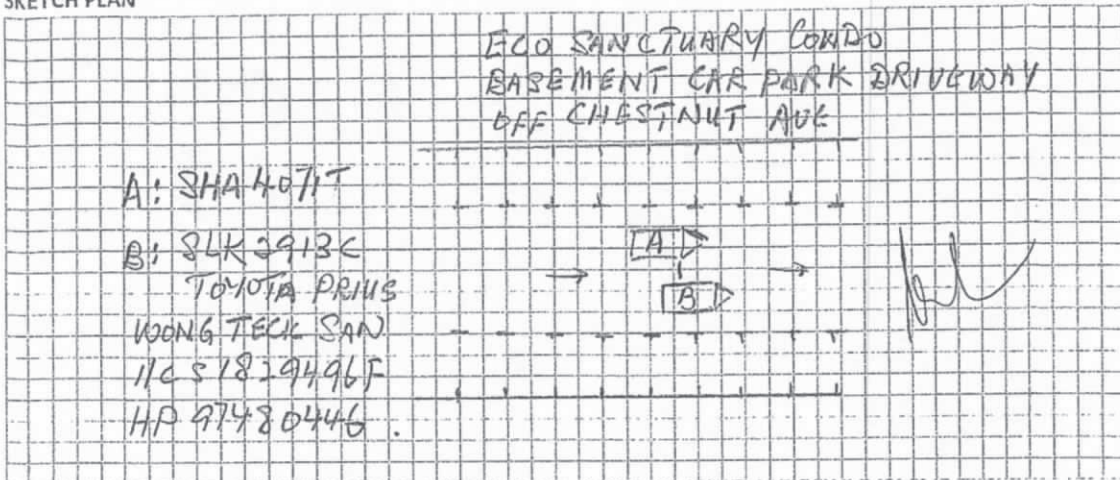 SKETCH PLAN
ECO SANCTUARY CONDO
BASEMENT CAR PARK DRIVEWAY
OFF CHESTNUT AVE
A: SHA 4071T
B: SLK 2913C
TOYOTA PRIUS
WONG TECK SAN
I/C S1829496F
HP 97480446.
A
B